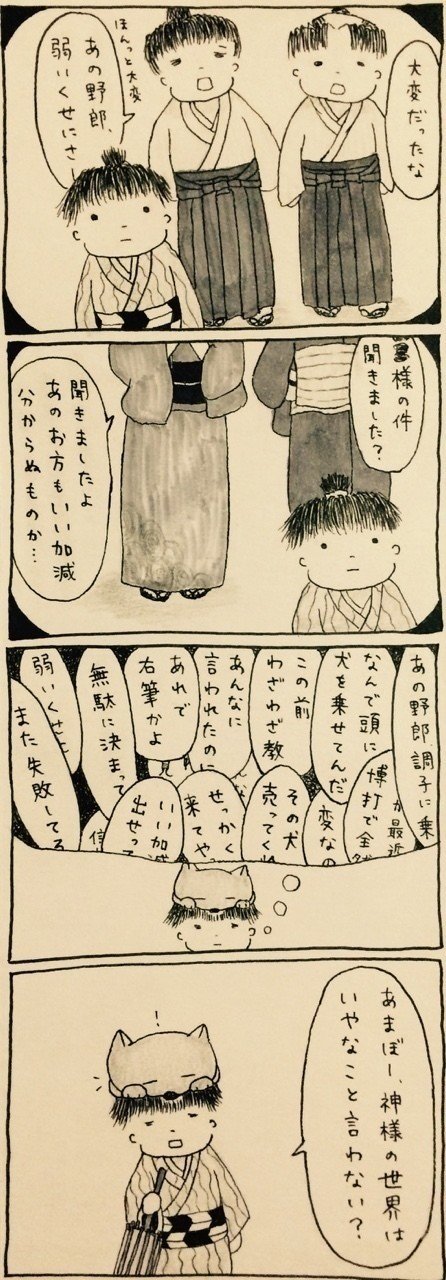 大変だったな
ほんっと大変
あの野郎、
弱いくせにさ
様の件
聞きました?
聞きましたよ
あのお方もいい加減
分からぬものか…
あの野郎調子に乗
が最近
博打で金銭
なんで頭に
犬を乗せてんだ
変なの
この前
わざわざ教
その犬
売ってくれ
あんなに
言われたのに
せっかく
来てや
あれで
右筆かよ
いい加減
出せって
無駄に決まって
信
弱いくせに
また失敗してる
あまぼー、神様の世界は
いやなこと言わない?
!